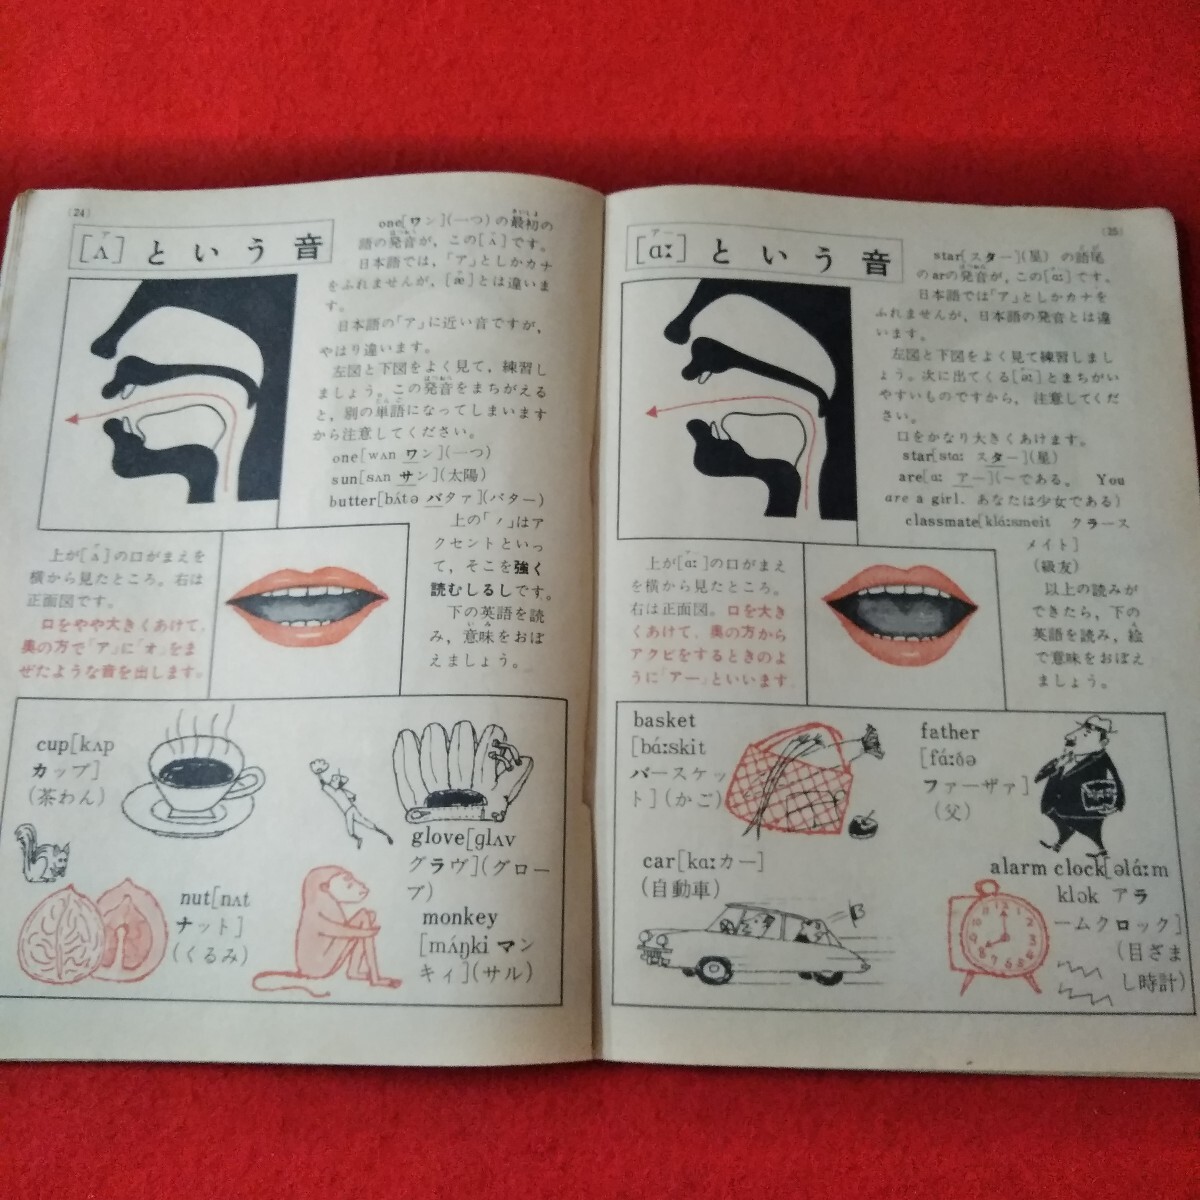 (24)
[ʌ] という音
ア
one[ワン](一つ)の最初の
さいしょ
語の発音が，この[ʌ]です。
はつおん
日本語では，「ア」としかカナ
をふれませんが，[æ]とは違いま
す。
日本語の「ア」に近い音ですが，
やはり違います。
左図と下図をよく見て，練習し
ましょう。この発音をまちがえる
と，別の単語になってしまいます
から注意してください。
one[wʌn ワン](一つ)
sun[sʌn サン](太陽)
butter[bʌ́tə バタァ](バター)
上の「ノ」はア
クセントといっ
て，そこを強く
読むしるしです。
下の英語を読
み，意味をおぼ
えましょう。
上が[ʌ]の口がまえを
横から見たところ。右は
正面図です。
口をやや大きくあけて，
奥の方で「ア」に「オ」をま
ぜたような音を出します。
cup[kʌp
カップ]
(茶わん)
glove[glʌv
グラヴ](グロー
ブ)
nut[nʌt
ナット]
(くるみ)
monkey
[mʌ́ŋki マン
キィ](サル)
(25)
[ɑː] という音
アー
star[スター](星) の語尾
のarの発音が，この[ɑː]です。
日本語では「ア」としかカナを
ふれませんが，日本語の発音とは違
います。
左図と下図をよく見て練習しまし
ょう。次に出てくる[əː]とまちがい
やすいものですから，注意してくだ
さい。
口をかなり大きくあけます。
star[stɑː スター](星)
are[ɑː アー](〜である。 You
are a girl. あなたは少女である)
classmate[klɑ́ːsmeit クラース
メイト]
(級友)
以上の読みが
できたら，下の
英語を読み，絵
で意味をおぼえ
ましょう。
上が[ɑː]の口がまえ
を横から見たところ。
右は正面図。口を大き
くあけて，奥の方から
アクビをするときのよ
うに「アー」といいます。
basket
[bɑ́ːskit
バースケッ
ト](かご)
father
[fɑ́ːðə
ファーザァ]
(父)
car[kɑːカー]
(自動車)
alarm clock[əlɑ́ːm
klɔk アラ
ームクロック]
(目ざま
し時計)